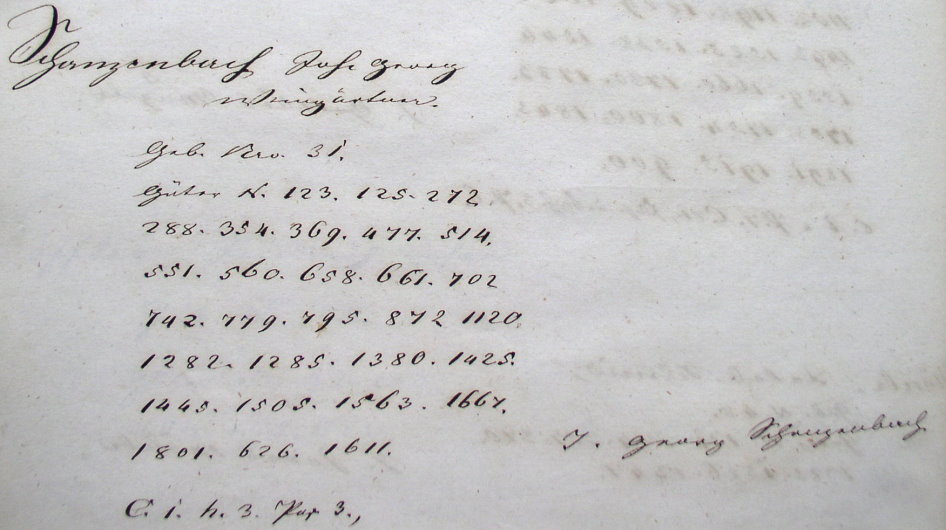 Schanzenbach Joh. Georg
Weingärtner.
Geb. Nro. 31.
Güter N. 123. 125. 272
288. 354. 369. 477. 514.
551. 560. 658. 661. 702
742. 779. 795. 872 1120.
1282. 1285. 1380. 1425.
1445. 1505. 1563. 1667.
1801. 626. 1611.
J. Georg Schanzenbach
C. i. h. 3. Par 3.,